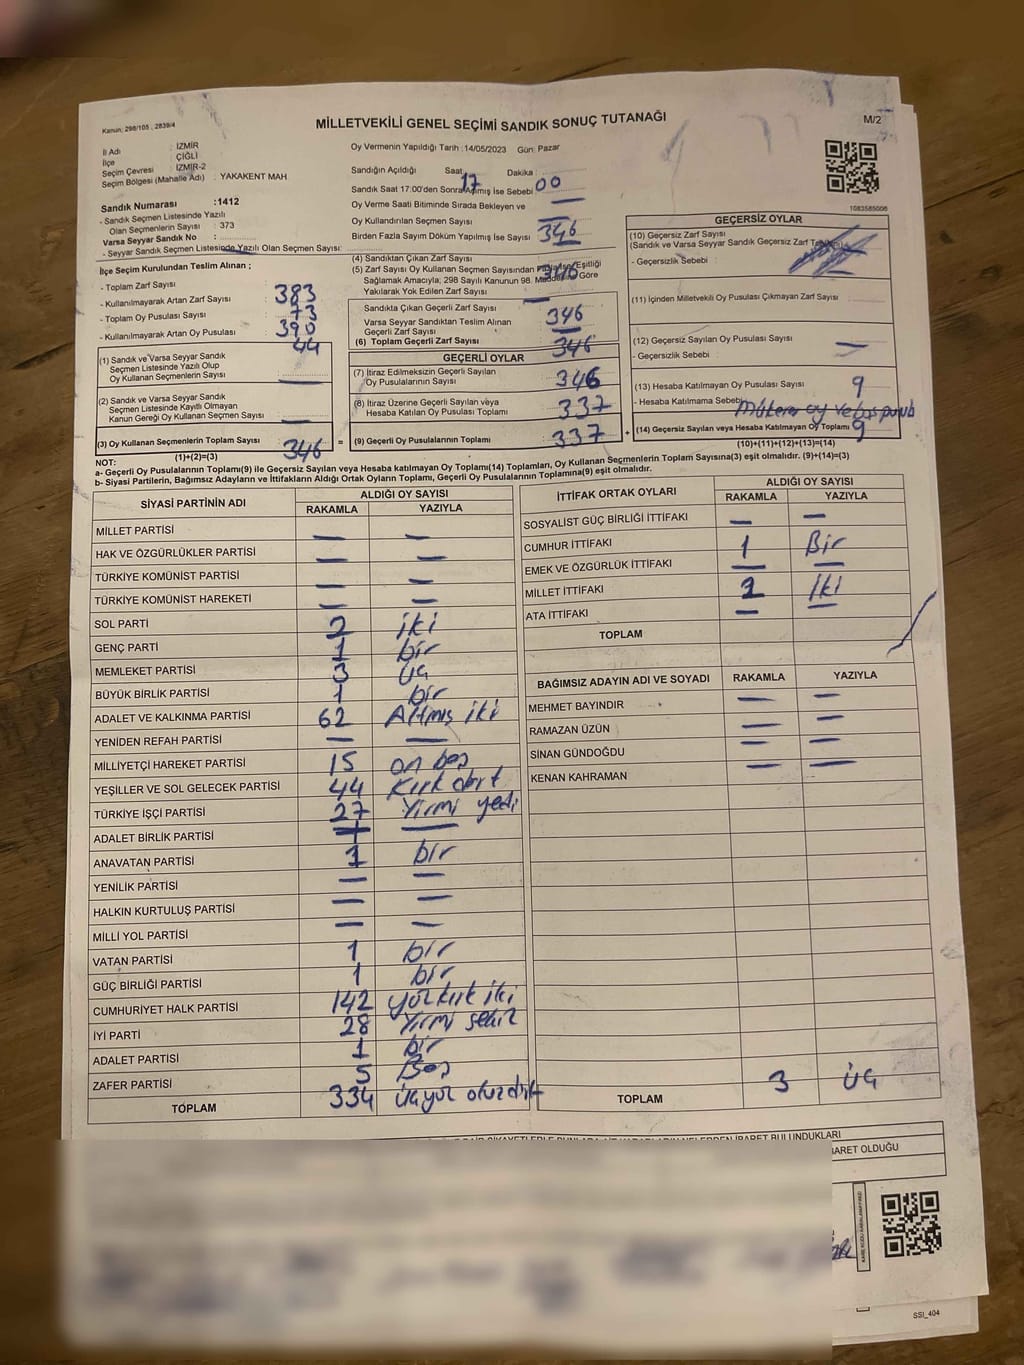 Kanun; 298/105 , 2839/4
MİLLETVEKİLİ GENEL SEÇİMİ SANDIK SONUÇ TUTANAĞI
M/2
İl Adı : İZMİR
İlçe : ÇİĞLİ
Seçim Çevresi : İZMİR-2
Seçim Bölgesi (Mahalle Adı) : YAKAKENT MAH
Sandık Numarası : 1412
- Sandık Seçmen Listesinde Yazılı
Olan Seçmenlerin Sayısı : 373
Varsa Seyyar Sandık No :
- Seyyar Sandık Seçmen Listesinde Yazılı Olan Seçmen Sayısı:
İlçe Seçim Kurulundan Teslim Alınan ;
- Toplam Zarf Sayısı : 383
- Kullanılmayarak Artan Zarf Sayısı : 73
- Toplam Oy Pusulası Sayısı : 390
- Kullanılmayarak Artan Oy Pusulası : 44
(1) Sandık ve Varsa Seyyar Sandık
Seçmen Listesinde Yazılı Olup
Oy Kullanan Seçmenlerin Sayısı : —
(2) Sandık ve Varsa Seyyar Sandık
Seçmen Listesinde Kayıtlı Olmayan
Kanun Gereği Oy Kullanan Seçmen Sayısı : —
(3) Oy Kullanan Seçmenlerin Toplam Sayısı 346 =
(1)+(2)=(3)
Oy Vermenin Yapıldığı Tarih :14/05/2023 Gün: Pazar
Sandığın Açıldığı Saat 17 Dakika : 00
Sandık Saat 17:00'den Sonra Açılmış İse Sebebi : —
Oy Verme Saati Bitiminde Sırada Bekleyen ve
Oy Kullandırılan Seçmen Sayısı : —
Birden Fazla Sayım Döküm Yapılmış İse Sayısı : 346
(4) Sandıktan Çıkan Zarf Sayısı : 346
(5) Zarf Sayısı Oy Kullanan Seçmen Sayısından Fazla İse Eşitliği
Sağlamak Amacıyla; 298 Sayılı Kanunun 98. Maddesine Göre
Yakılarak Yok Edilen Zarf Sayısı : —
Sandıkta Çıkan Geçerli Zarf Sayısı : 346
Varsa Seyyar Sandıktan Teslim Alınan
Geçerli Zarf Sayısı : —
(6) Toplam Geçerli Zarf Sayısı : 346
GEÇERLİ OYLAR
(7) İtiraz Edilmeksizin Geçerli Sayılan
Oy Pusulalarının Sayısı : 346
(8) İtiraz Üzerine Geçerli Sayılan veya
Hesaba Katılan Oy Pusulası Toplamı : 337
(9) Geçerli Oy Pusulalarının Toplamı : 337 +
1083585006
GEÇERSİZ OYLAR
(10) Geçersiz Zarf Sayısı
(Sandık ve Varsa Seyyar Sandık Geçersiz Zarf
- Geçersizlik Sebebi : —
(11) İçinden Milletvekili Oy Pusulası Çıkmayan Zarf Sayısı
(12) Geçersiz Sayılan Oy Pusulası Sayısı : —
- Geçersizlik Sebebi :
(13) Hesaba Katılmayan Oy Pusulası Sayısı 9
- Hesaba Katılmama Sebebi : Mükerrer oy ve boş pusula
(14) Geçersiz Sayılan veya Hesaba Katılmayan Oy Toplamı 9
(10)+(11)+(12)+(13)=(14)
NOT:
a- Geçerli Oy Pusulalarının Toplamı(9) ile Geçersiz Sayılan veya Hesaba katılmayan Oy Toplamı(14) Toplamları, Oy Kullanan Seçmenlerin Toplam Sayısına(3) eşit olmalıdır. (9)+(14)=(3)
b- Siyasi Partilerin, Bağımsız Adayların ve İttifakların Aldığı Ortak Oyların Toplamı, Geçerli Oy Pusulalarının Toplamına(9) eşit olmalıdır.
SİYASİ PARTİNİN ADI ALDIĞI OY SAYISI
RAKAMLA YAZIYLA
MİLLET PARTİSİ — —
HAK VE ÖZGÜRLÜKLER PARTİSİ — —
TÜRKİYE KOMÜNİST PARTİSİ — —
TÜRKİYE KOMÜNİST HAREKETİ — —
SOL PARTİ 2 iki
GENÇ PARTİ 1 bir
MEMLEKET PARTİSİ 3 üç
BÜYÜK BİRLİK PARTİSİ 1 bir
ADALET VE KALKINMA PARTİSİ 62 Altmış iki
YENİDEN REFAH PARTİSİ — —
MİLLİYETÇİ HAREKET PARTİSİ 15 on beş
YEŞİLLER VE SOL GELECEK PARTİSİ 44 Kırk dört
TÜRKİYE İŞÇİ PARTİSİ 27 Yirmi yedi
ADALET BİRLİK PARTİSİ — —
ANAVATAN PARTİSİ 1 bir
YENİLİK PARTİSİ — —
HALKIN KURTULUŞ PARTİSİ — —
MİLLİ YOL PARTİSİ — —
VATAN PARTİSİ 1 bir
GÜÇ BİRLİĞİ PARTİSİ 1 bir
CUMHURİYET HALK PARTİSİ 142 yüz kırk iki
İYİ PARTİ 28 Yirmi sekiz
ADALET PARTİSİ 1 bir
ZAFER PARTİSİ 5 Beş
TOPLAM 334 üçyüz otuzdört
İTTİFAK ORTAK OYLARI ALDIĞI OY SAYISI
RAKAMLA YAZIYLA
SOSYALİST GÜÇ BİRLİĞİ İTTİFAKI — —
CUMHUR İTTİFAKI 1 Bir
EMEK VE ÖZGÜRLÜK İTTİFAKI — —
MİLLET İTTİFAKI 2 İki
ATA İTTİFAKI — —
TOPLAM
BAĞIMSIZ ADAYIN ADI VE SOYADI RAKAMLA YAZIYLA
MEHMET BAYINDIR — —
RAMAZAN ÜZÜN — —
SİNAN GÜNDOĞDU — —
KENAN KAHRAMAN — —
TOPLAM 3 üç
NELERDEN İBARET BULUNDUKLARI
BARET OLDUĞU
SSİ_404